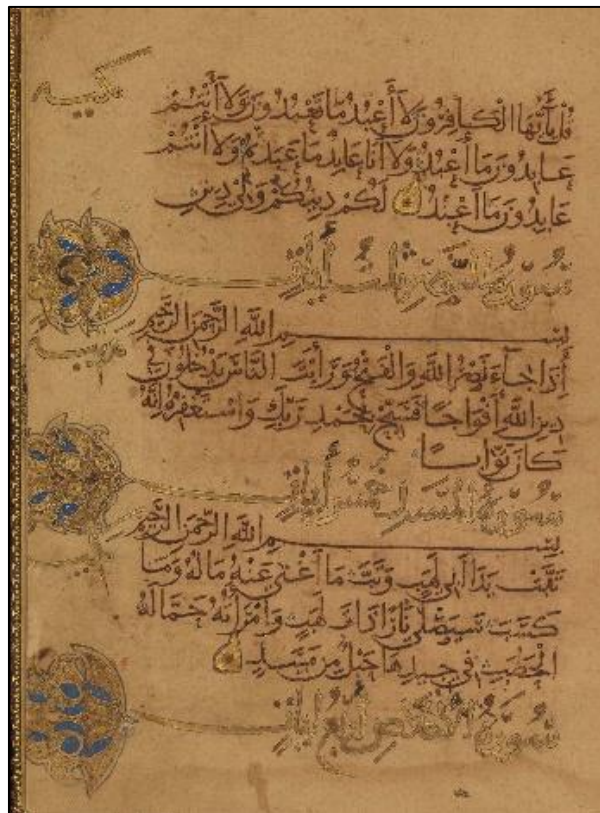 مكية
قل يأيها الكافرون لا أعبد ما تعبدون ولا أنتم
عابدون ما أعبد ولا أنا عابد ما عبدتم ولا أنتم
عابدون ما أعبد لكم دينكم ولي دين
سورة النصر ثلث آيات
بسم الله الرحمن الرحيم
إذا جاء نصر الله والفتح ورأيت الناس يدخلون في
دين الله أفواجا فسبح بحمد ربك واستغفره إنه
كان توابا
سورة المسد خمس آيات
بسم الله الرحمن الرحيم
تبت يدا أبي لهب وتب ما أغنى عنه ماله وما
كسب سيصلى نارا ذات لهب وامرأته حمالة
الحطب في جيدها حبل من مسد
سورة أربع آيات